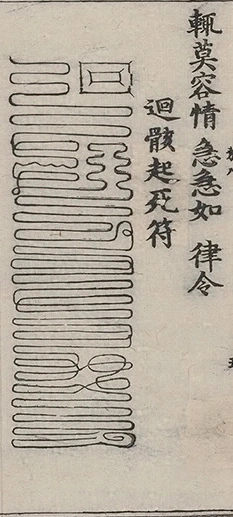 輒莫容情急急如 律令
迴骸起死符